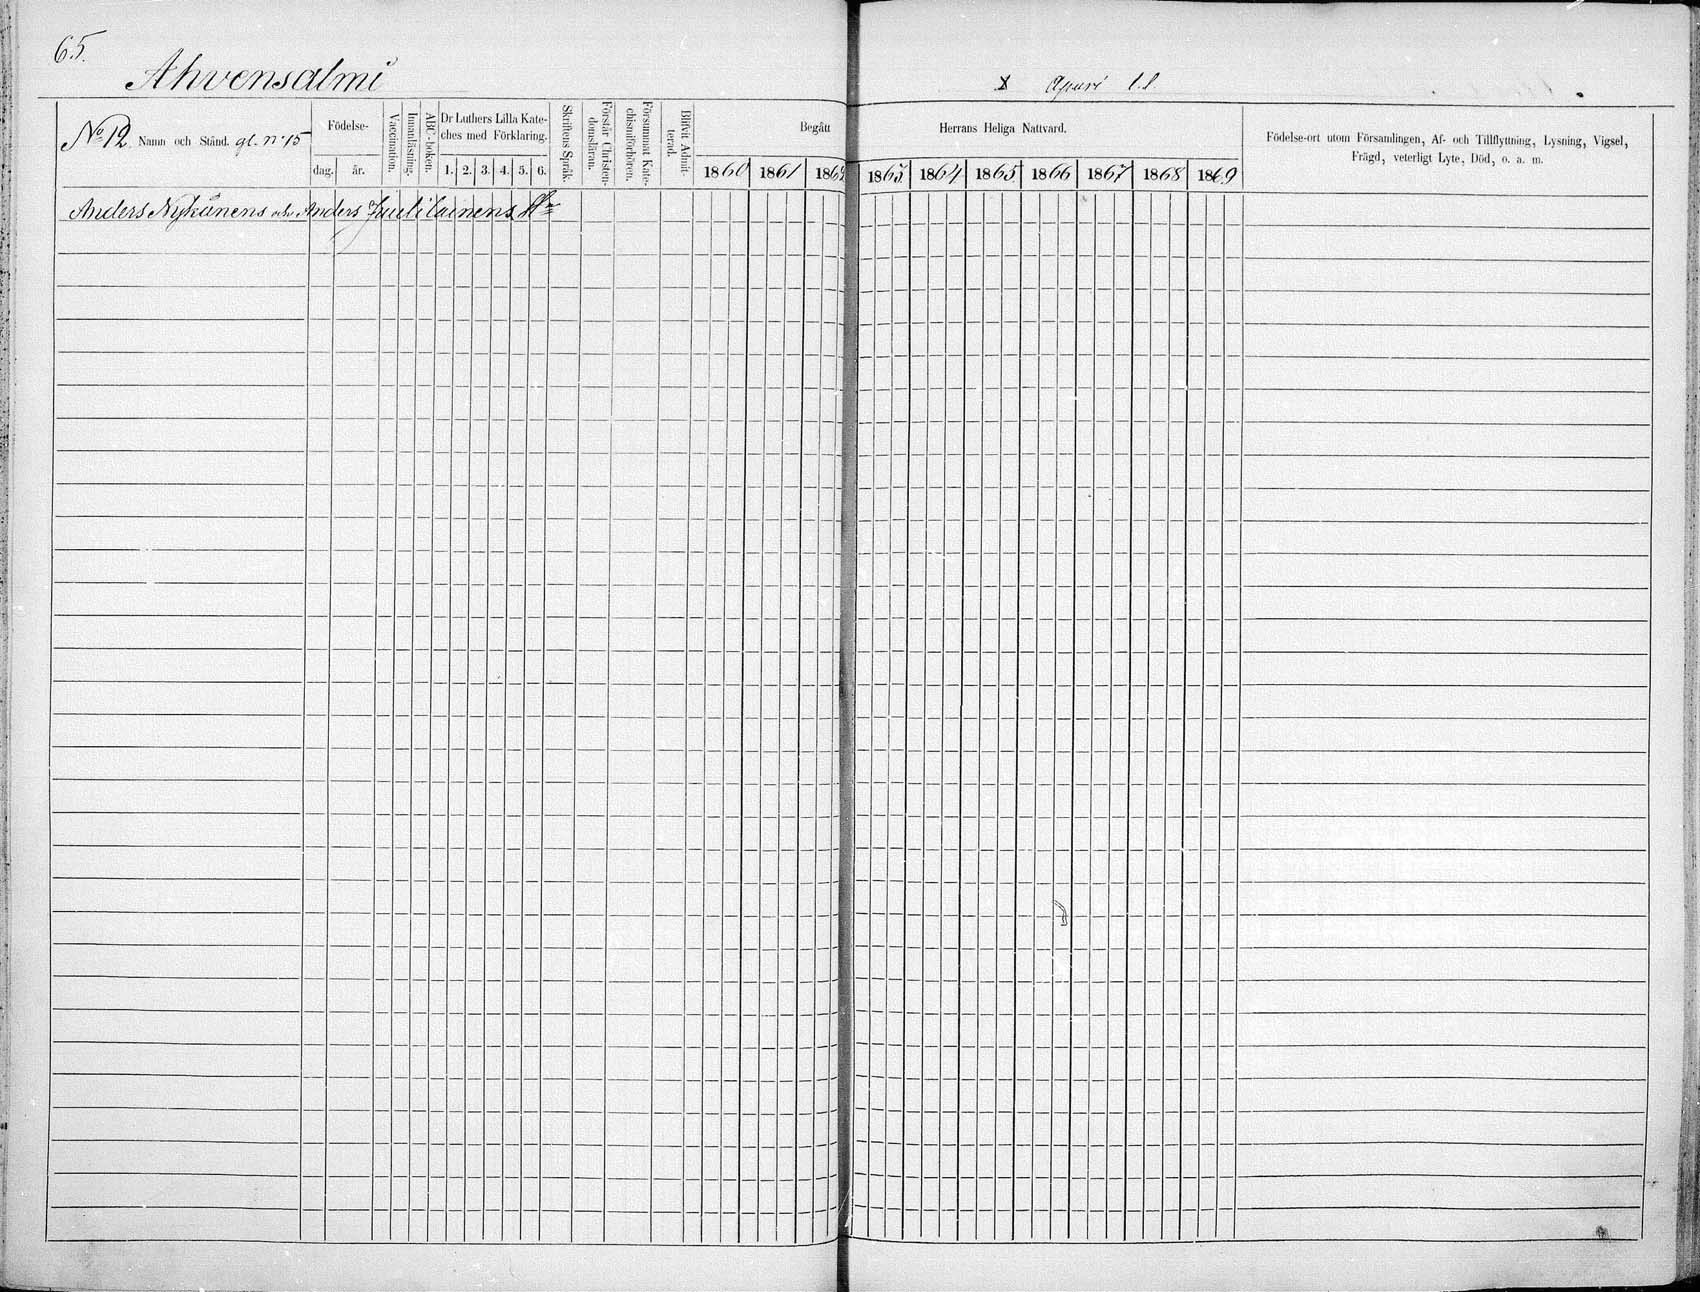 65.
Ahvensalmi
Apari l.l.
No 12 Namn och Stånd. gl. n:o 15
Födelse-
dag. år.
Vaccination.
Innanläsning.
ABC-boken.
Dr Luthers Lilla Kate-
ches med Förklaring.
1. 2. 3. 4. 5. 6.
Skriftens Språk.
Förstår Christen-
domsläran.
Försummat Kate-
chismiförhören.
Blifvit Admit-
terad.
Begått
Herrans Heliga Nattvard.
1860 1861 1862 1863 1864 1865 1866 1867 1868 1869
Födelse-ort utom Församlingen, Af- och Tillflyttning, Lysning, Vigsel,
Frägd, veterligt Lyte, Död, o. a. m.
Anders Nykänens och Anders Juutilainens